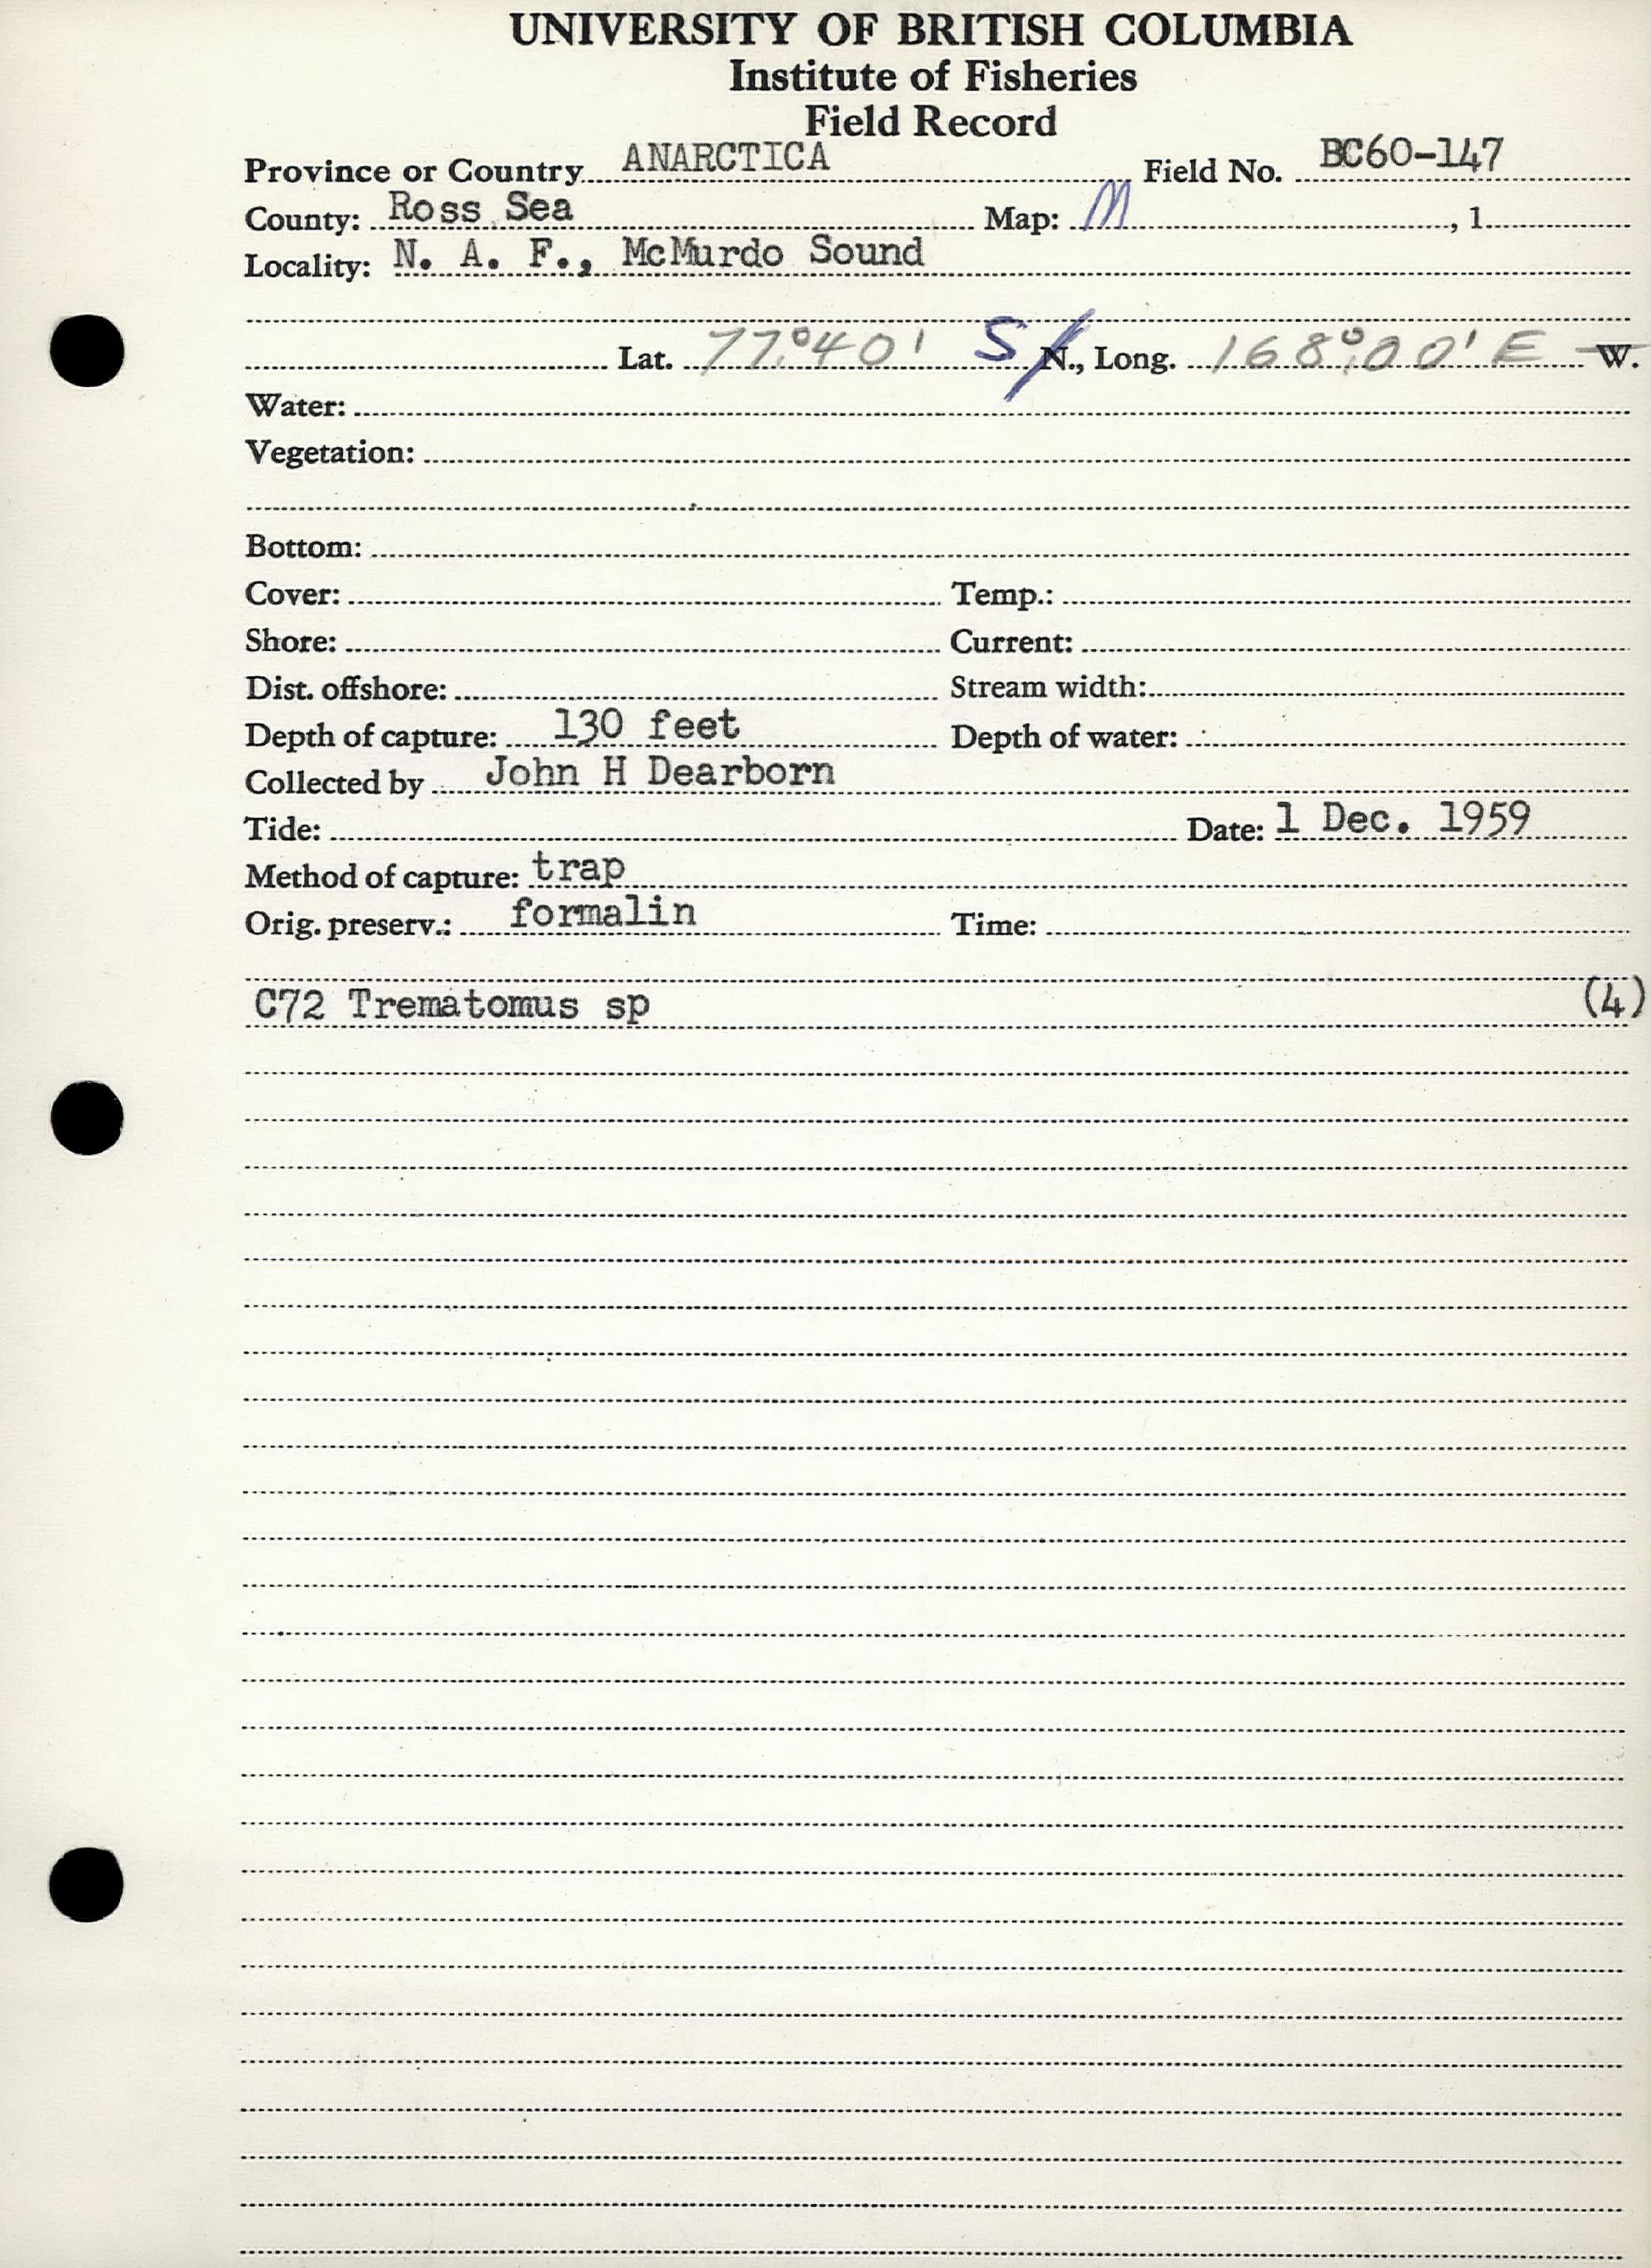 UNIVERSITY OF BRITISH COLUMBIA
Institute of Fisheries
Field Record
Province or Country ANARCTICA Field No. BC60-147
County: Ross Sea Map: M , 1
Locality: N. A. F., McMurdo Sound
Lat. 77°40' S N., Long. 168°00' E W.
Water:
Vegetation:
Bottom:
Cover: Temp.:
Shore: Current:
Dist. offshore: Stream width:
Depth of capture: 130 feet Depth of water:
Collected by John H Dearborn
Tide: Date: 1 Dec. 1959
Method of capture: trap
Orig. preserv.: formalin Time:
C72 Trematomus sp (4)